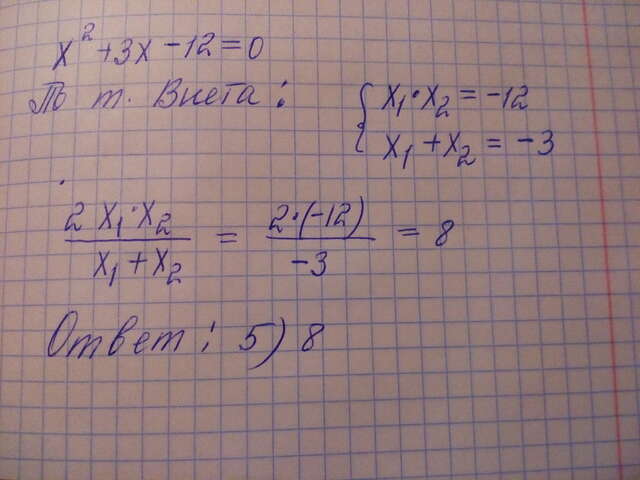 x² + 3x - 12 = 0
По т. Виета: { x₁·x₂ = -12
x₁ + x₂ = -3
2 x₁·x₂ / x₁ + x₂ = 2·(-12) / -3 = 8
Ответ: 5) 8